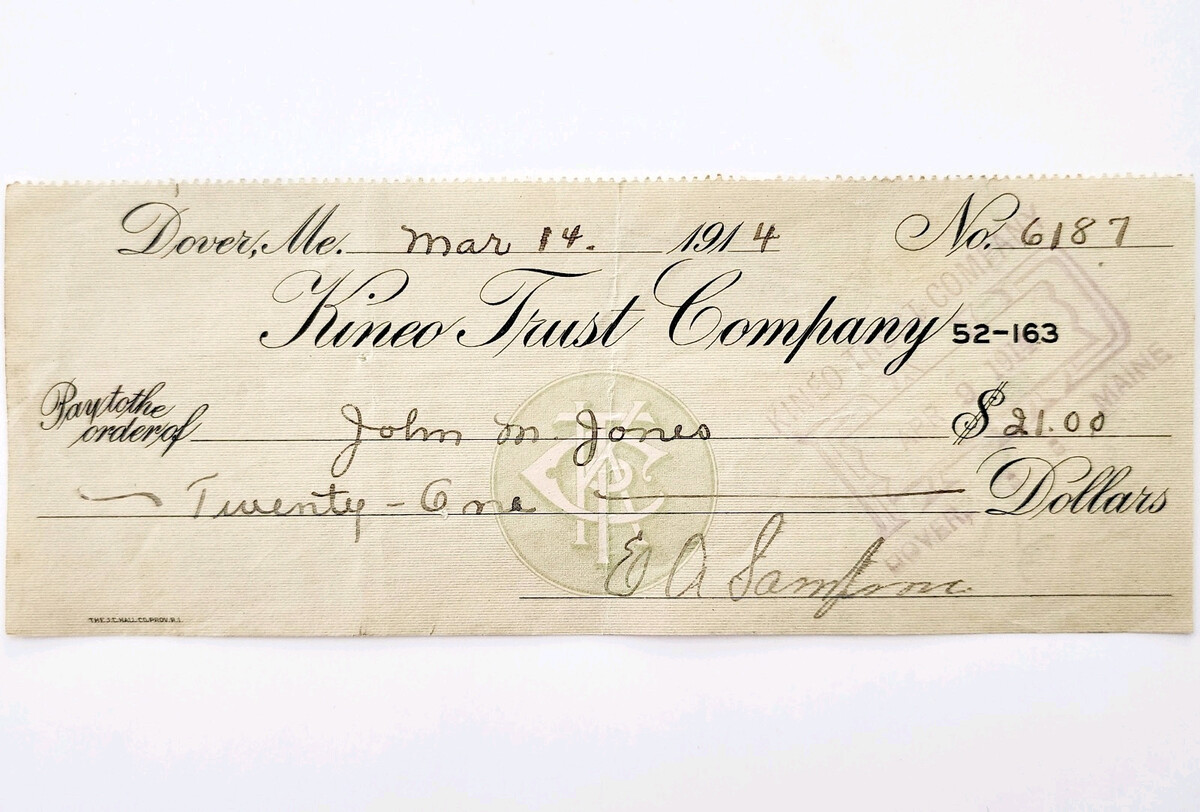 Dover, Me. Mar 14. 1914 No. 6187
Kineo Trust Company 52-163
Pay to the order of John M. Jones $ 21.00
Twenty-One Dollars
E A Sampson
THE J.C. HALL CO. PROV. R.I.
KINEO TRUST COMPANY
APR 2 191
DOVER, MAINE